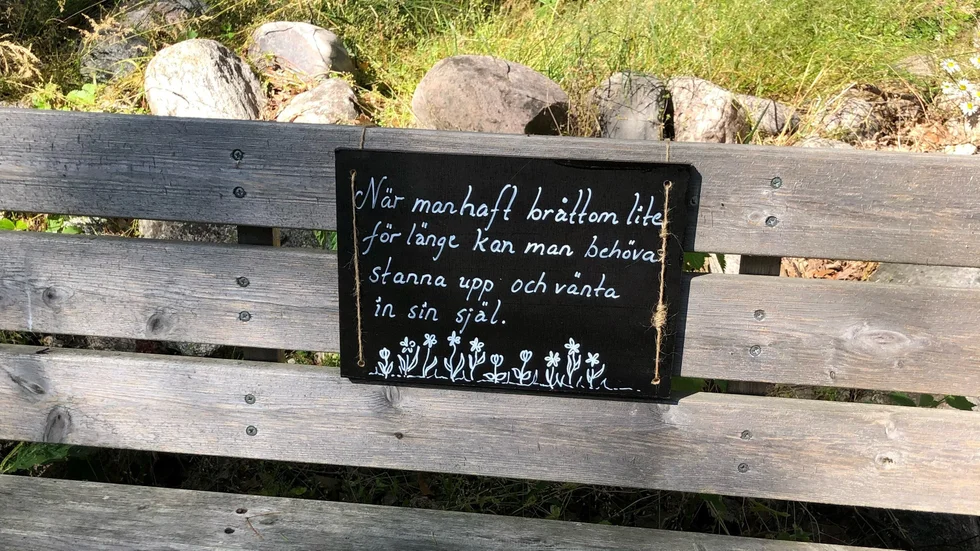 När man haft bråttom lite
för länge kan man behöva
stanna upp och vänta
in sin själ.